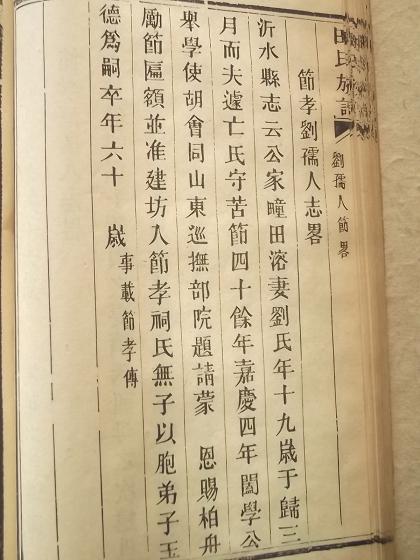 田氏族譜
劉孺人節畧
節孝劉孺人志畧
沂水縣志云公家疃田溶妻劉氏年十九歲于歸三
月而夫遽亡氏守苦節四十餘年嘉慶四年闔學公
舉學使胡會同山東巡撫部院題請蒙 恩賜柏舟
勵節匾額並准建坊入節孝祠氏無子以胞弟子玉
德為嗣卒年六十 歲事載節孝傳